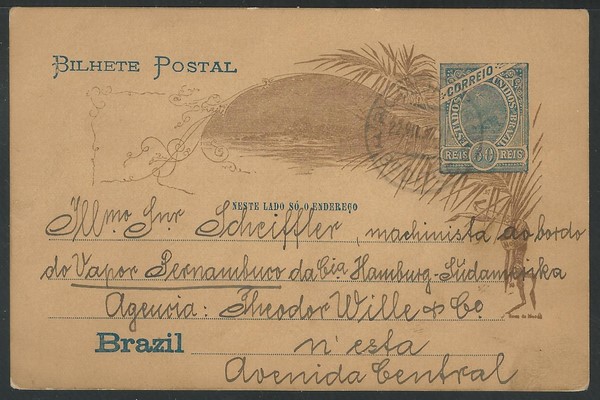 BILHETE POSTAL
CORREIO
ESTADOS UNIDOS BRAZIL
REIS 50 REIS
NESTE LADO SÓ O ENDEREÇO
Illmo Snr Scheiffler, machinista ao bordo
do Vapor Pernambuco da Cia Hamburg-Südamerika
Agencia: Theodor Wille & Co.
Brazil n'esta
Avenida Central